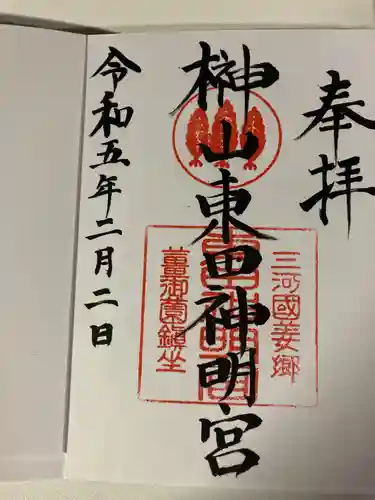 奉拝
榊山東田神明宮
三河國姜郷
薑御薗鎮坐
令和五年二月二日